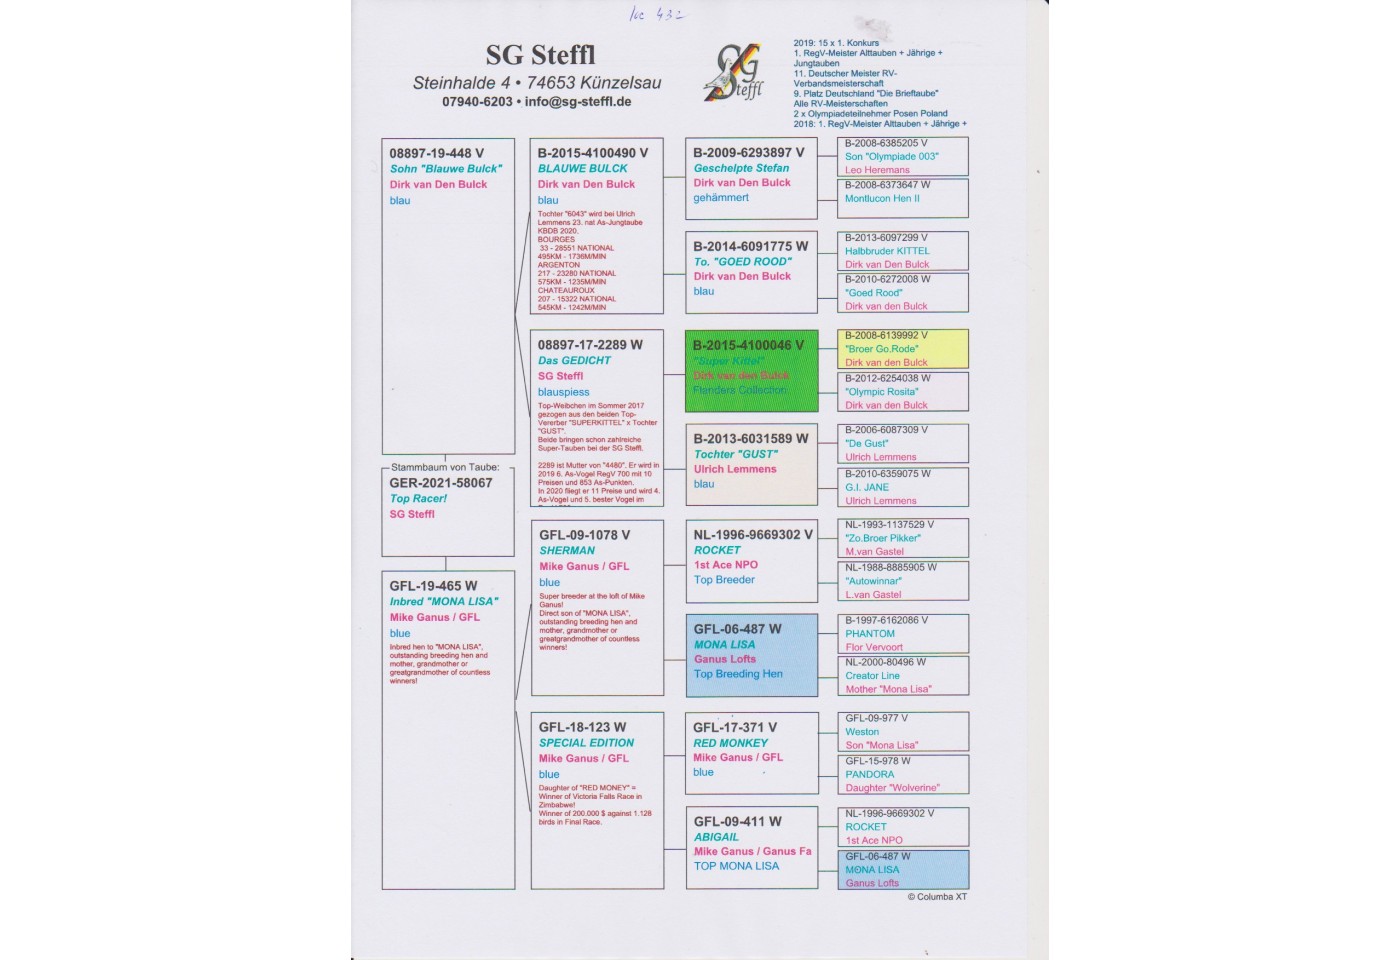 loc 432
SG Steffl
Steinhalde 4 • 74653 Künzelsau
07940-6203 • info@sg-steffl.de
SG
Steffl
2019: 15 x 1. Konkurs
1. RegV-Meister Alttauben + Jährige +
Jungtauben
11. Deutscher Meister RV-
Verbandsmeisterschaft
9. Platz Deutschland "Die Brieftaube"
Alle RV-Meisterschaften
2 x Olympiadeteilnehmer Posen Poland
2018: 1. RegV-Meister Alttauben + Jährige +
08897-19-448 V
Sohn "Blauwe Bulck"
Dirk van Den Bulck
blau
Stammbaum von Taube:
GER-2021-58067
Top Racer!
SG Steffl
GFL-19-465 W
Inbred "MONA LISA"
Mike Ganus / GFL
blue
Inbred hen to "MONA LISA",
outstanding breeding hen and
mother, grandmother or
greatgrandmother of countless
winners!
B-2015-4100490 V
BLAUWE BULCK
Dirk van Den Bulck
blau
Tochter "6043" wird bei Ulrich
Lemmens 23. nat As-Jungtaube
KBDB 2020.
BOURGES
33 - 28551 NATIONAL
495KM - 1736M/MIN
ARGENTON
217 - 23280 NATIONAL
575KM - 1235M/MIN
CHATEAUROUX
207 - 15322 NATIONAL
545KM - 1242M/MIN
08897-17-2289 W
Das GEDICHT
SG Steffl
blauspiess
Top-Weibchen im Sommer 2017
gezogen aus den beiden Top-
Vererber "SUPERKITTEL" x Tochter
"GUST".
Beide bringen schon zahlreiche
Super-Tauben bei der SG Steffl.
2289 ist Mutter von "4480". Er wird in
2019 6. As-Vogel RegV 700 mit 10
Preisen und 853 As-Punkten.
In 2020 fliegt er 11 Preise und wird 4.
As-Vogel und 5. bester Vogel im
GFL-09-1078 V
SHERMAN
Mike Ganus / GFL
blue
Super breeder at the loft of Mike
Ganus!
Direct son of "MONA LISA",
outstanding breeding hen and
mother, grandmother or
greatgrandmother of countless
winners!
GFL-18-123 W
SPECIAL EDITION
Mike Ganus / GFL
blue
Daughter of "RED MONEY" =
Winner of Victoria Falls Race in
Zimbabwe!
Winner of 200.000 $ against 1.128
birds in Final Race.
B-2009-6293897 V
Geschelpte Stefan
Dirk van Den Bulck
gehämmert
B-2014-6091775 W
To. "GOED ROOD"
Dirk van Den Bulck
blau
B-2015-4100046 V
"Super Kittel"
Dirk van den Bulck
Flanders Collection
B-2013-6031589 W
Tochter "GUST"
Ulrich Lemmens
blau
NL-1996-9669302 V
ROCKET
1st Ace NPO
Top Breeder
GFL-06-487 W
MONA LISA
Ganus Lofts
Top Breeding Hen
GFL-17-371 V
RED MONKEY
Mike Ganus / GFL
blue
GFL-09-411 W
ABIGAIL
Mike Ganus / Ganus Fa
TOP MONA LISA
B-2008-6385205 V
Son "Olympiade 003"
Leo Heremans
B-2008-6373647 W
Montlucon Hen II
B-2013-6097299 V
Halbbruder KITTEL
Dirk van Den Bulck
B-2010-6272008 W
"Goed Rood"
Dirk van den Bulck
B-2008-6139992 V
"Broer Go.Rode"
Dirk van den Bulck
B-2012-6254038 W
"Olympic Rosita"
Dirk van den Bulck
B-2006-6087309 V
"De Gust"
Ulrich Lemmens
B-2010-6359075 W
G.I. JANE
Ulrich Lemmens
NL-1993-1137529 V
"Zo.Broer Pikker"
M.van Gastel
NL-1988-8885905 W
"Autowinnar"
L.van Gastel
B-1997-6162086 V
PHANTOM
Flor Vervoort
NL-2000-80496 W
Creator Line
Mother "Mona Lisa"
GFL-09-977 V
Weston
Son "Mona Lisa"
GFL-15-978 W
PANDORA
Daughter "Wolverine"
NL-1996-9669302 V
ROCKET
1st Ace NPO
GFL-06-487 W
MONA LISA
Ganus Lofts
© Columba XT